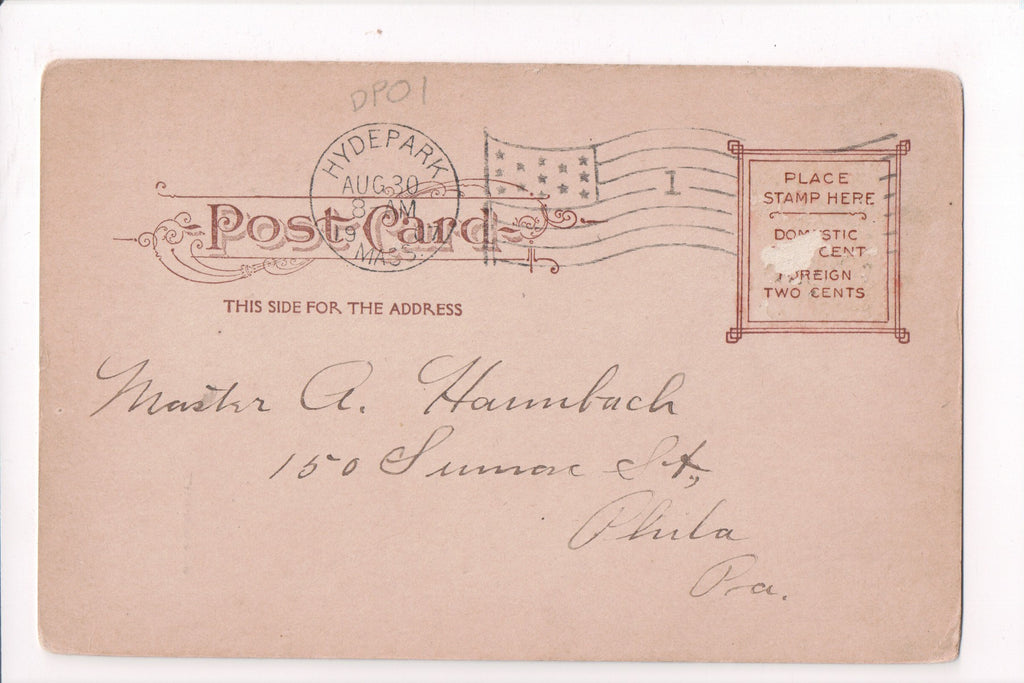 DPO1
HYDE PARK
AUG 30
8 AM
19
MASS.
1
Post Card
THIS SIDE FOR THE ADDRESS
PLACE
STAMP HERE
DOMESTIC
CENT
FOREIGN
TWO CENTS
Master A. Haunbach
150 Sumac St.,
Phila
Pa.